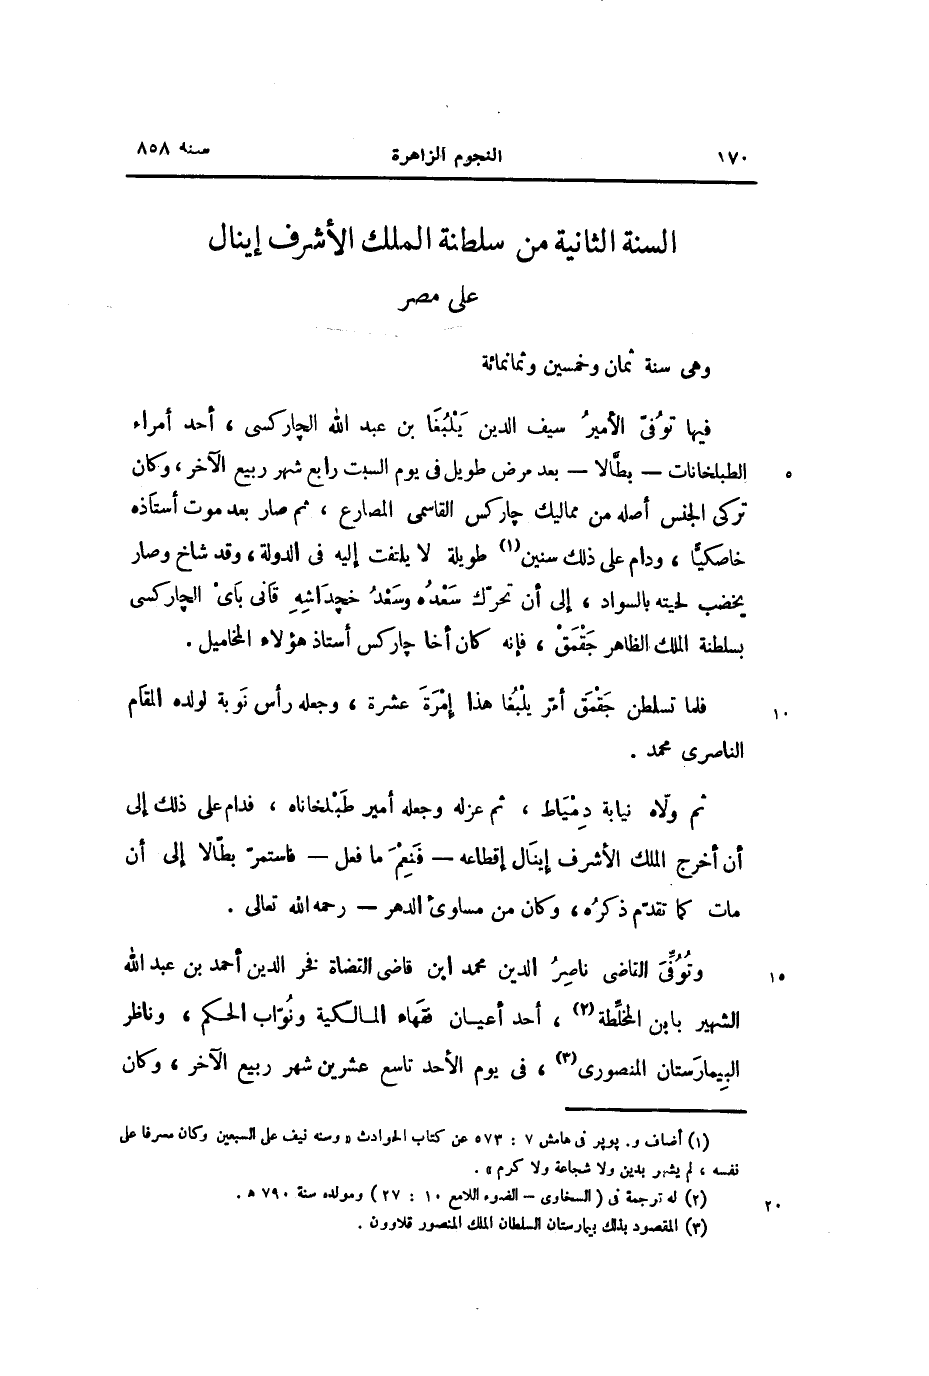 ١٧٠ النجوم الزاهرة سنة ٨٥٨
السنة الثانية من سلطنة الملك الأشرف إينال
على مصر
وهى سنة ثمان وخمسين وثمانمائة
فيها توُفىّ الأميرُ سيف الدين يَلْبُغَا بن عبد الله الچاركسى ، أحد أمراء
الطبلخانات — بطَّالا — بعد مرض طويل فى يوم السبت رابع شهر ربيع الآخر ، وكان ٥
تركى الجنس أصله من مماليك چاركس القاسمى المصارع ، ثم صار بعد موت أستاذه
خاصكيًّا ، ودام على ذلك سنين(١) طويلة لا يلتفت إليه فى الدولة ، وقد شاخ وصار
يخضب لحيته بالسواد ، إلى أن تحرّك سَعْدُه وسَعْدُ خچداشِهِ قانى بَاىْ الچاركسى
بسلطنة الملك الظاهر جَقْمَقْ ، فإنه كان أخا چاركس أستاذ هؤلاء المخاميل .
فلما تسلطن جَقْمَق أمّر يلْبُغا هذا إمْرَةَ عشرة ، وجعله رأس نَوبة لولده المقَام ١٠
الناصرى محمد .
ثم ولّاه نيابة دِمْيَاط ، ثم عزله وجعله أمير طَبْلخاناه ، فدام على ذلك إلى
أن أخرج الملك الأشرف إينَال إقطاعه — فَنِعْمَ ما فعل — فاستمرّ بطّالا إلى أن
مات كما تقدّم ذكرُه ، وكان من مساوئ الدهر — رحمه الله تعالى .
وتُوُفِّىَ القاضى ناصِرُ الدين محمد ابن قاضى القضاة فخر الدين أحمد بن عبد الله ١٥
الشهير بابن المخلِّطة(٢) ، أحد أعيان فقهاء المالكية ونُوّاب الحكم ، وناظر
البِيمارَستان المنصورى(٣) ، فى يوم الأحد تاسع عشرين شهر ربيع الآخر ، وكان
(١) أضاف و. پوپر فى هامش ٧ : ٥٧٣ عن كتاب الحوادث « وسنه نيف على السبعين وكان مسرفا على
نفسه ، لم يشهر بدين ولا شجاعة ولا كرم » .
(٢) له ترجمة فى ( السخاوى – الضوء اللامع ١٠ : ٢٧ ) ومولده سنة ٧٩٠ ه . ٢٠
(٣) المقصود بذلك بيمارستان السلطان الملك المنصور قلاوون .